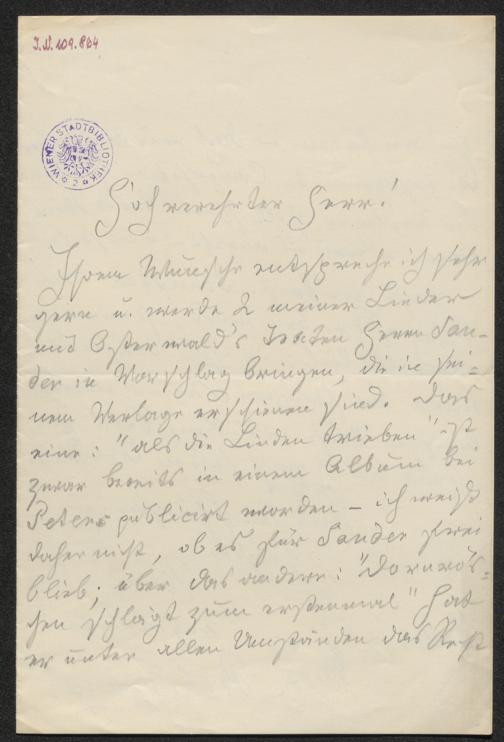 I.N. 109.864
WIENER STADTBIBLIOTHEK
Hochverehrter Herr!
Ihrem Wunsche entspreche ich sehr
gern u. werde 2 meiner Lieder
mit Osterwald's Texten Herrn San-
der in Vorschlag bringen, die in sei-
nem Verlage erschienen sind. Das
eine: "als die Linden trieben" ist
zwar bereits in einem Album bei
Peters publicirt worden – ich weiß
daher nicht, ob es für Sander frei
blieb; über das andere: "Dornrös-
chen schlägt zum erstenmal" hat
er unter allen Umständen das Recht